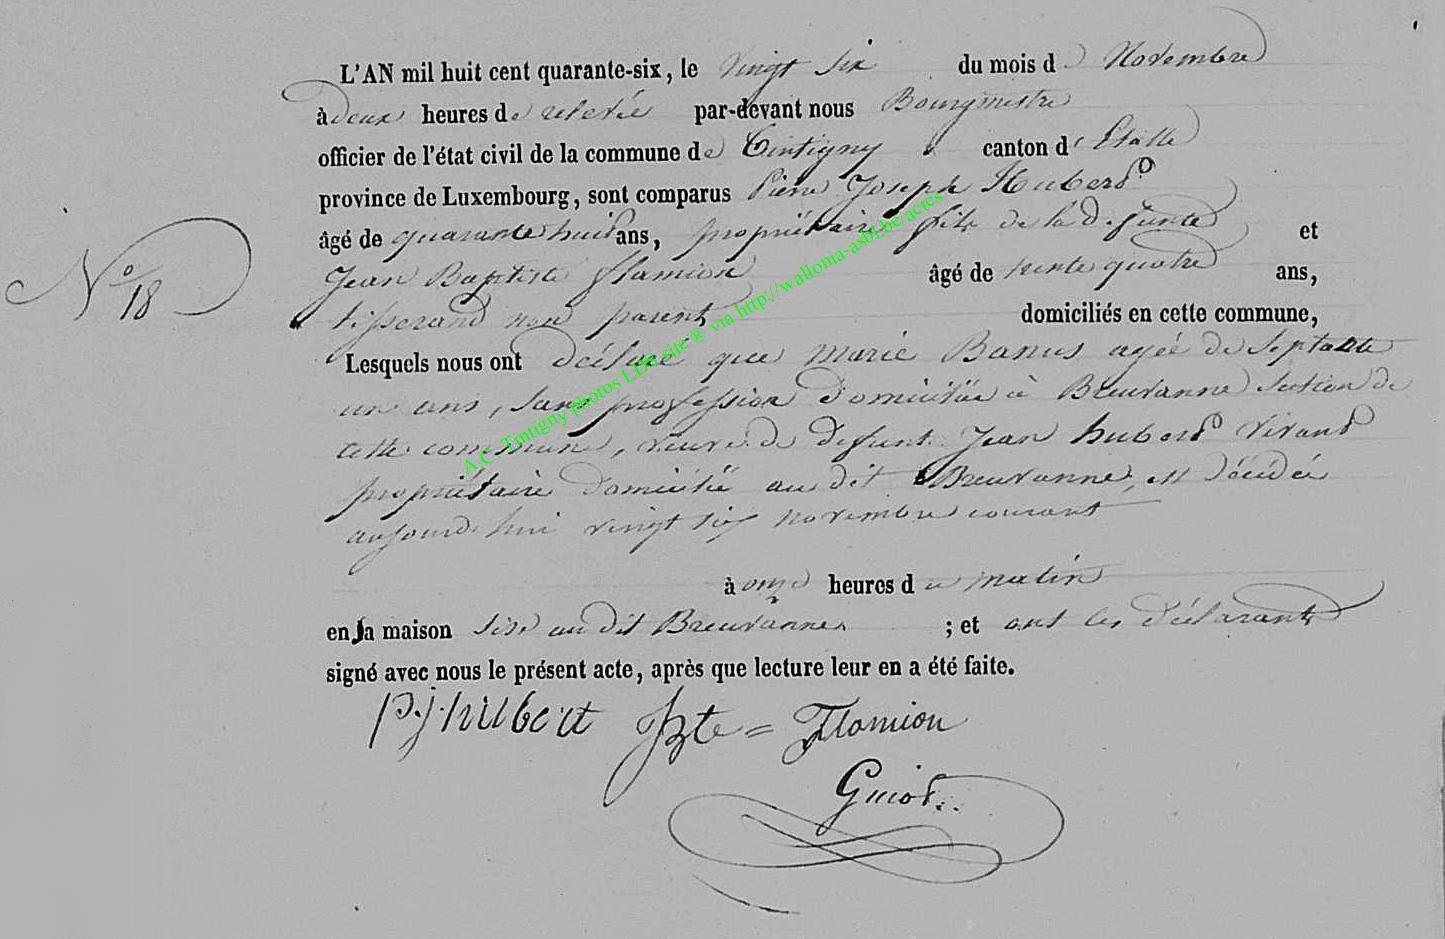 L'AN mil huit cent quarante-six, le vingt six du mois de Novembre
à deux heures de relevée par-devant nous Bourgmestre
officier de l'état civil de la commune de Tintigny canton d'Etalle
province de Luxembourg, sont comparus Pierre Joseph Hubert
âgé de quarante huit ans, propriétaire fils de la defunte et
Jean Baptiste flamion âgé de trente quatre ans,
N° 18
tisserand non parent domiciliés en cette commune,
Lesquels nous ont déclaré que Marie Banus agée de Septante
un ans, sans profession domiciliée à Breuvanne Section de
cette commune, veuve de defunt Jean hubert vivant
propriétaire domicilié au dit Breuvanne, est décédée
aujourd'hui vingt six novembre courant
à onze heures du matin
en la maison sise au dit Breuvanne ; et ont les déclarants
signé avec nous le présent acte, après que lecture leur en a été faite.
P.j.hubert JBte = Flamion
Guiot
A.C. Tintigny photos LDS site ® via http://wallonia-asbl.be/actes